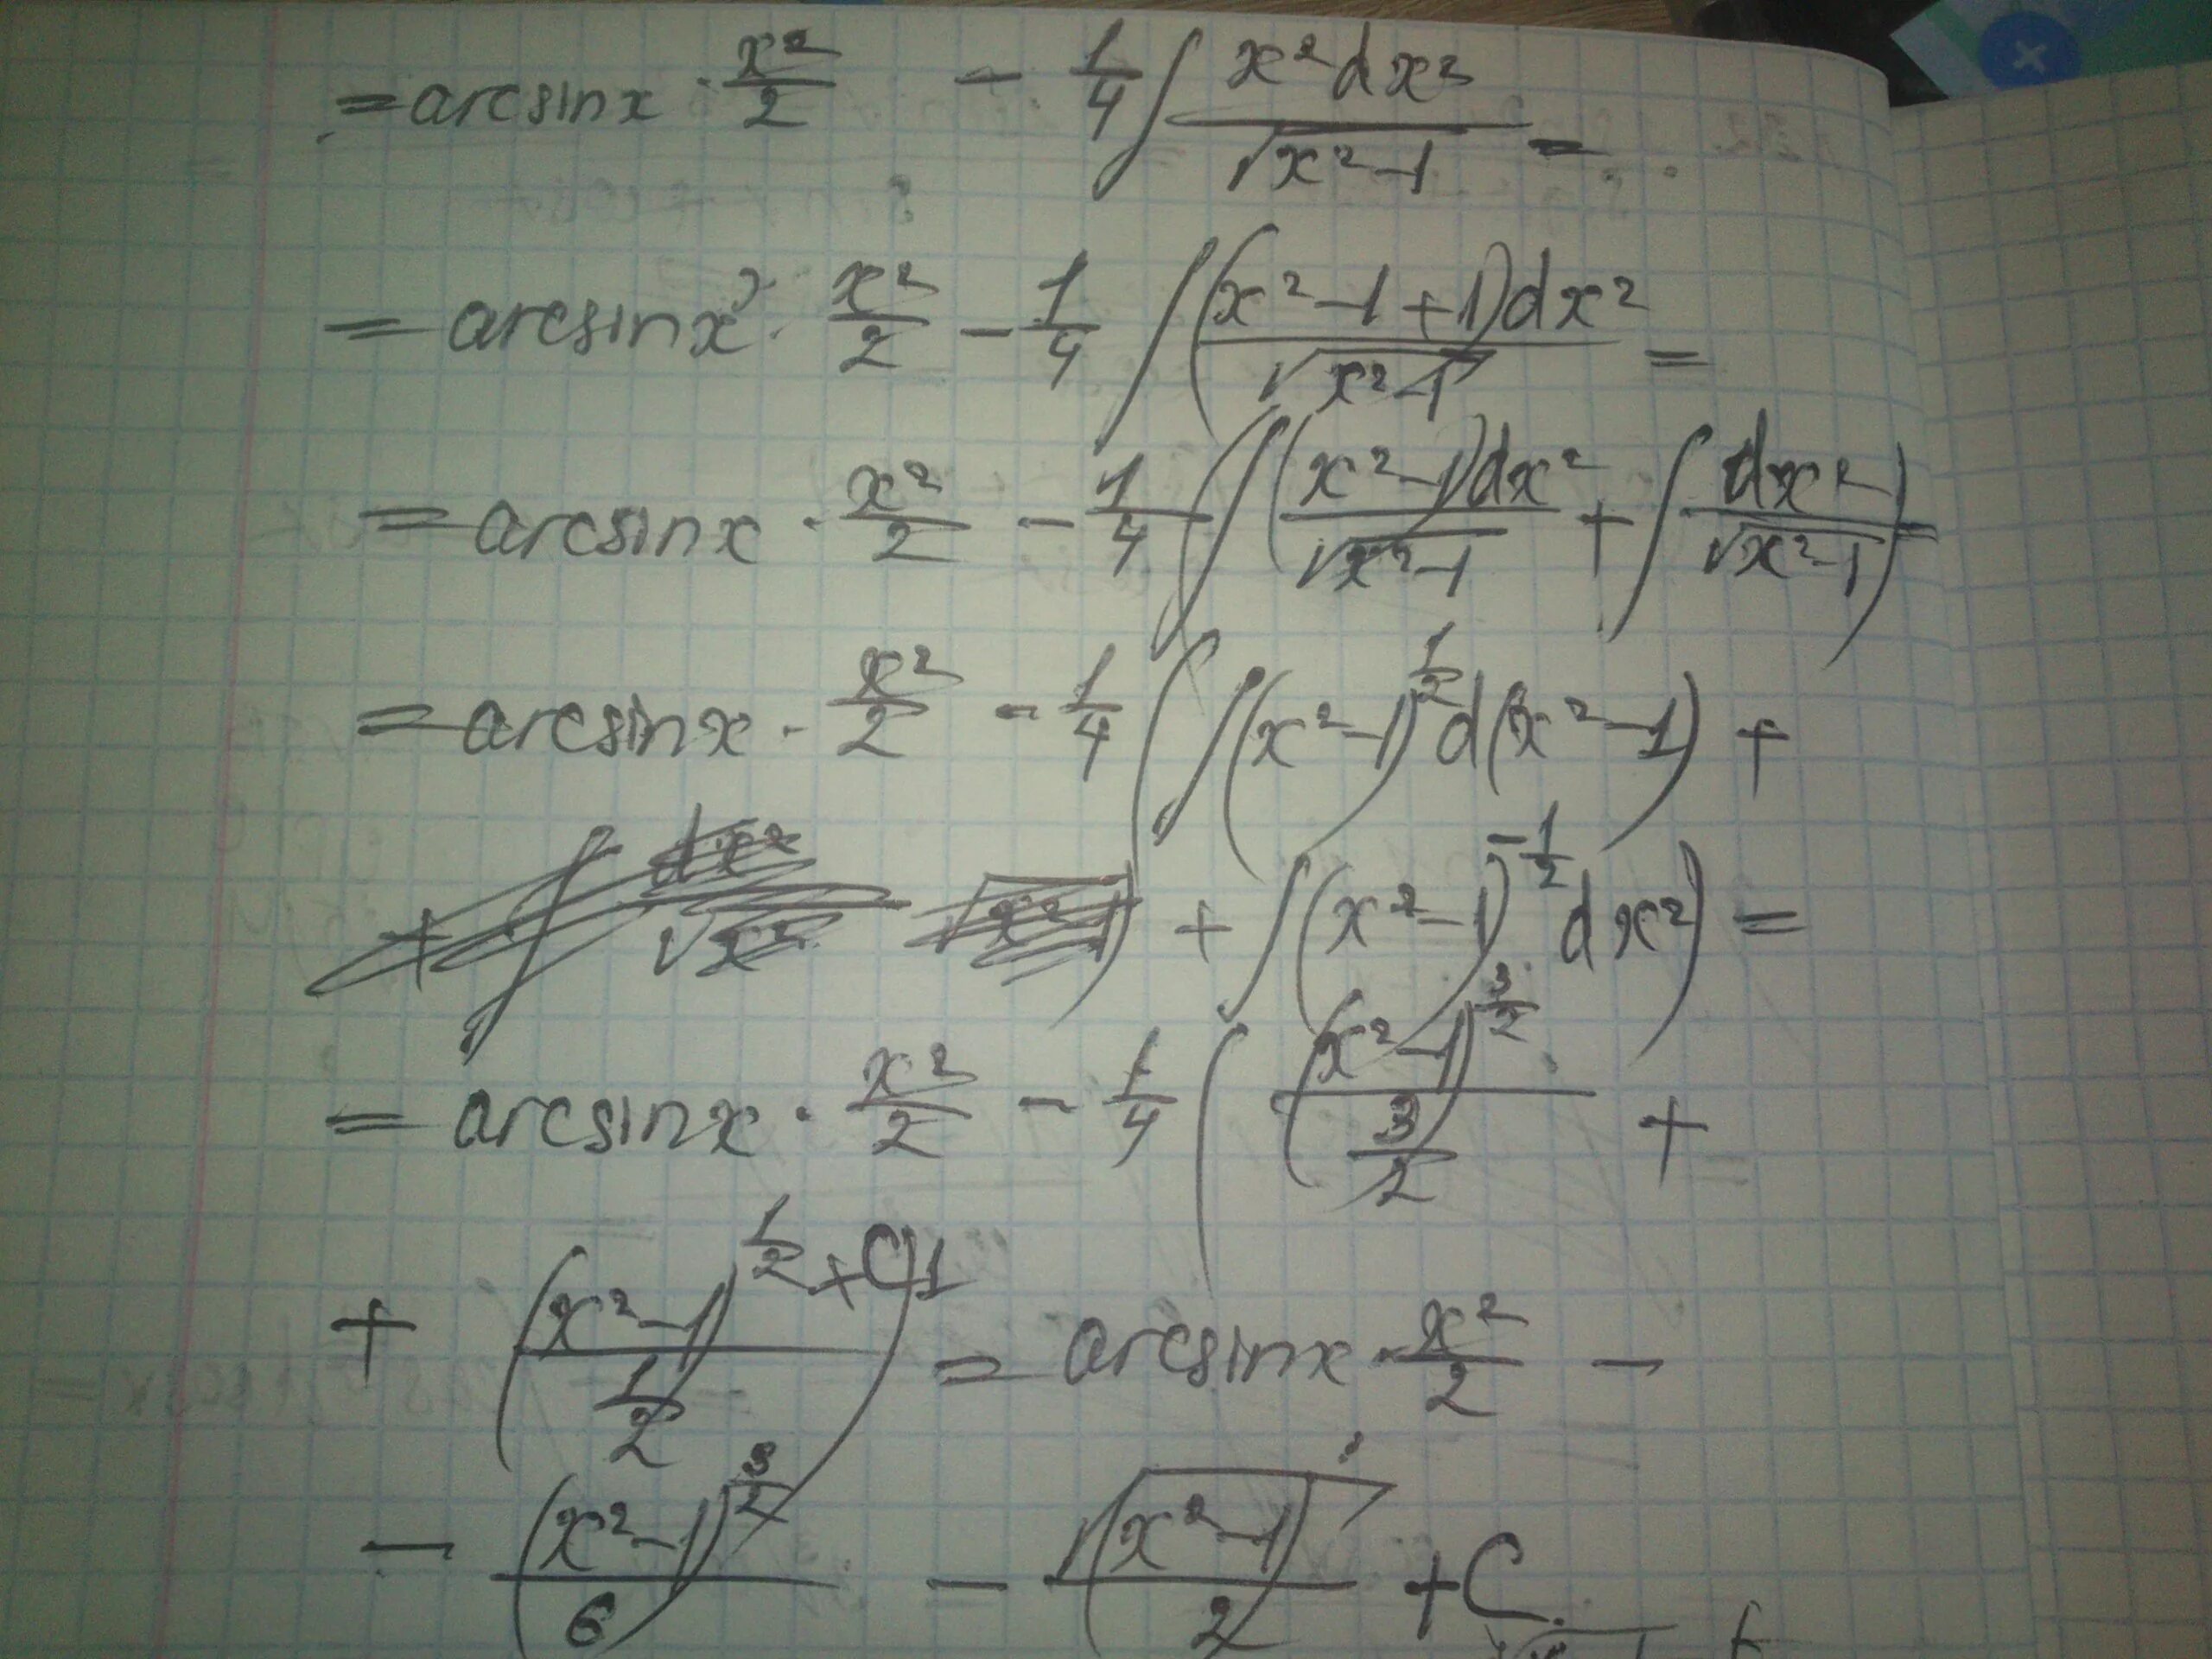 = arcsinx · x²/2 - 1/4 ∫ x²dx²/√(x²-1) =
= arcsinx · x²/2 - 1/4 ∫ (x²-1+1)dx²/√(x²-1) =
= arcsinx · x²/2 - 1/4 (∫ (x²-1)dx²/√(x²-1) + ∫ dx²/√(x²-1)) =
= arcsinx · x²/2 - 1/4 (∫ (x²-1)^(1/2) d(x²-1) +
+ ∫ (x²-1)^(-1/2) dx²) =
= arcsinx · x²/2 - 1/4 ( (x²-1)^(3/2)/(3/2) +
+ (x²-1)^(1/2)/(1/2) + C1) = arcsinx · x²/2 -
- (x²-1)^(3/2)/6 - √(x²-1)/2 + C.